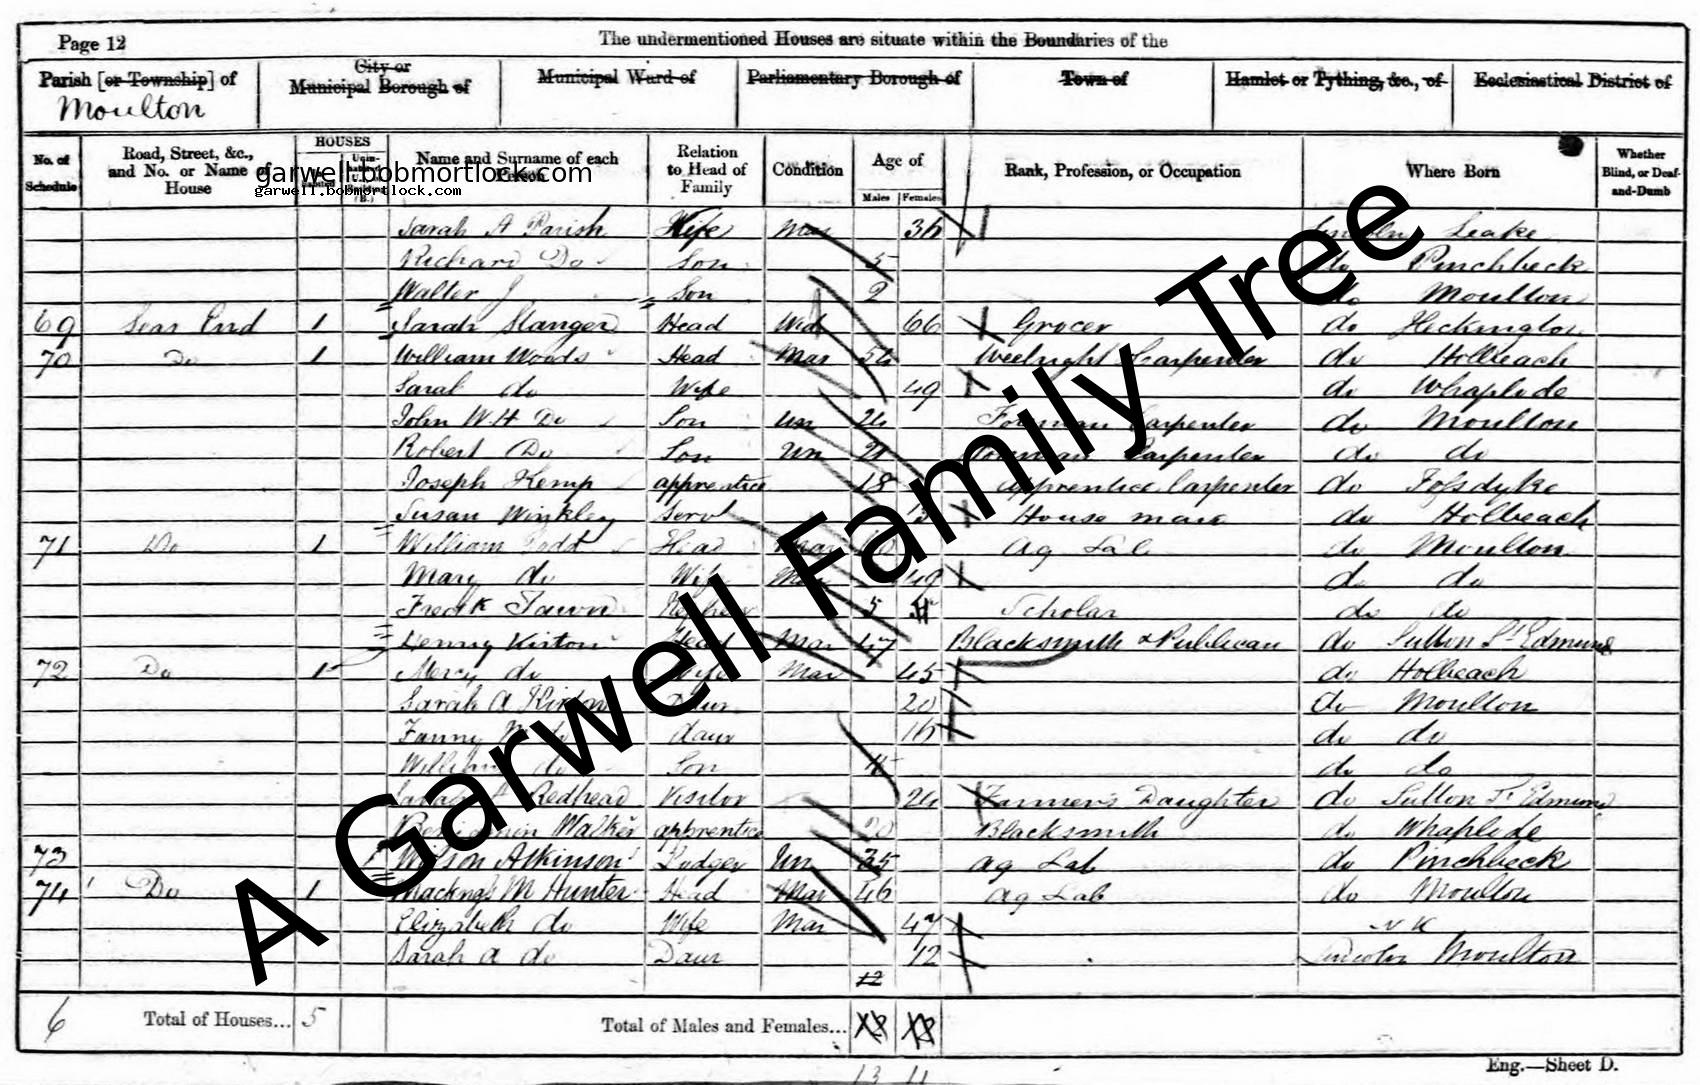 Page 12
The undermentioned Houses are situate within the Boundaries of the
Parish [or Township] of
Moulton
City or Municipal Borough of
Municipal Ward of
Parliamentary Borough of
Town of
Hamlet or Tything, &c., of
Ecclesiastical District of
No. of Schedule
Road, Street, &c., and No. or Name of House
HOUSES
Name and Surname of each Person
Relation to Head of Family
Condition
Age of
Males
Females
Rank, Profession, or Occupation
Where Born
Whether Blind, or Deaf-and-Dumb
garwell.bobmortlock.com
garwell.bobmortlock.com
Sarah A Parish Wife Mar 36 Lincoln Leake
Richard Do Son 5 do Pinchbeck
Walter J Son 2 do Moulton
69 Seas End 1 Sarah Stanger Head Wid 66 Grocer do Heckington
70 Do 1 William Woods Head Mar 54 Weelright & Carpenter do Holbeach
Sarah do Wife 49 do Whaplode
John W H Do Son Un 24 Carpenter do Moulton
Robert Do Son Un 21 Carpenter do do
Joseph Kemp apprentice 18 Apprentice Carpenter do Fosdyke
Susan Winkley Serv House maid do Holbeach
71 Do 1 William Todd Head Mar Ag Lab do Moulton
Mary do Wife Mar 49 do do
Fredk Tawn Nephew 5 Scholar do do
Henry Kirton Head Mar 47 Blacksmith & Publican do Sutton St Edmund
72 Do 1 Mercy do Wife Mar 45 do Holbeach
Sarah A Kirton Daur 20 do Moulton
Fanny do Daur 16 do do
William do Son do do
Sarah Redhead Visitor 24 Farmer's Daughter do Sutton St Edmund
Benjamin Walker apprentice 20 Blacksmith do Whaplode
73 Wilson Atkinson Lodger Un 35 Ag Lab do Pinchbeck
74 Do 1 M Hunter Head Mar 46 Ag Lab do Moulton
Elizabeth do Wife Mar 47 N K
Sarah A do Daur 12 Lincoln Moulton
12
6 Total of Houses... 5 Total of Males and Females...
13 11
Eng.—Sheet D.
A Garwell Family Tree